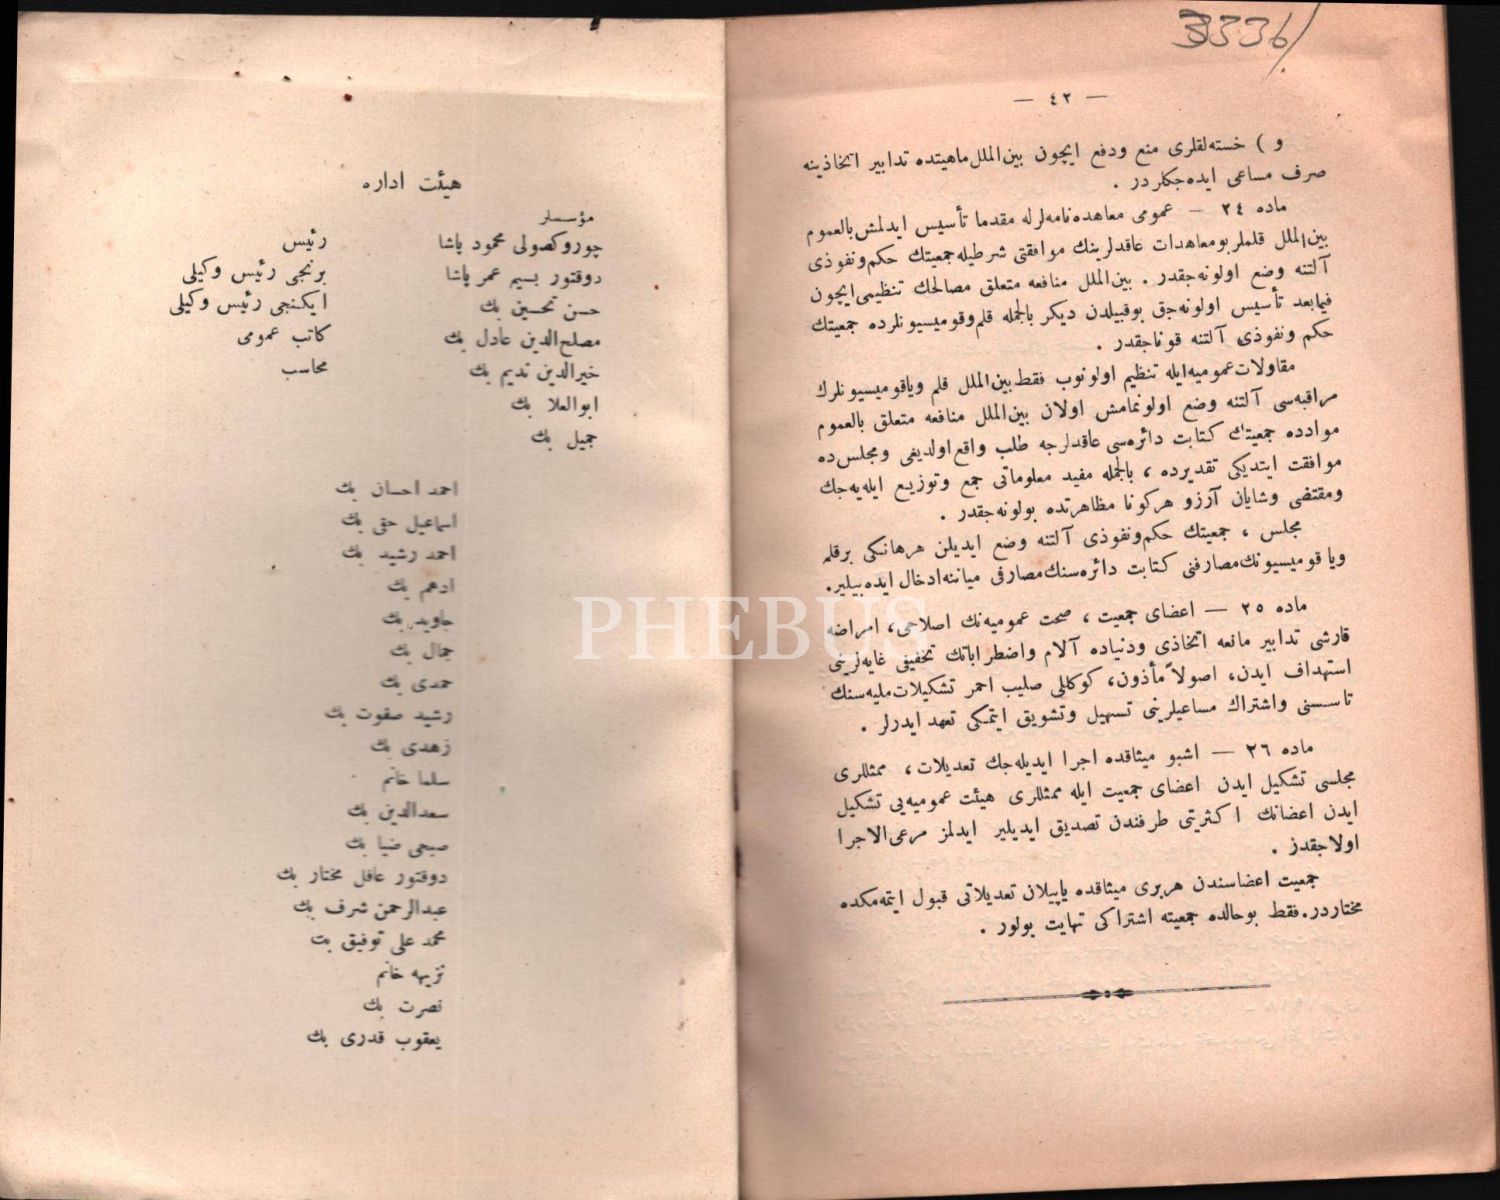 3336/
— ٤٢ —
و ) خسته‌لقلری منع ودفع ایچون بین‌الملل ماهیتده تدابیر اتخاذینه
صرف مساعی ایده‌جکلردر .
ماده ٢٤ — عمومی معاهده‌نامه‌لرله مقدما تأسیس ایدلمش بالعموم
بین‌الملل قلملر بومعاهدات عاقدلرینك موافقتی شرطیله جمعیتك حکم‌ونفوذی
آلتنه وضع اولونه‌جقدر . بین‌الملل منافعه متعلق مصالحك تنظیمی‌ایچون
فیمابعد تأسیس اولونه‌جق بوقبیلدن دیکر بالجمله قلم‌وقومیسیونلرده جمعیتك
حکم ونفوذی آلتنه قوناجقدر .
مقاولات‌عمومیه‌ایله تنظیم اولونوب فقط بین‌الملل قلم ویاقومیسیونلرك
مراقبه‌سی آلتنه وضع اولونمامش اولان بین‌الملل منافعه متعلق بالعموم
موادده جمعیتك کتابت دائره‌سی عاقدلرجه طلب واقع‌اولدیغی ومجلس‌ده
موافقت ایتدیکی تقدیرده ، بالجمله مفید معلوماتی جمع وتوزیع ایله‌یه‌جك
ومقتضی وشایان آرزو هرکونا مظاهرتده بولونه‌جقدر .
مجلس ، جمعیتك حکم‌ونفوذی آلتنه وضع ایدیلن هرهانکی برقلم
ویا قومیسیونك‌مصارفنی کتابت دائره‌سنك‌مصارفی میاننه‌ادخال ایده‌بیلیر.
ماده ٢٥ — اعضای جمعیت ، صحت عمومیه‌نك اصلاحی، امراضه
قارشی تدابیر مانعه اتخاذی ودنیاده آلام واضطراباتك تخفیفی غایه‌لرینی
استهداف ایدن، اصولاً مأذون، کوکللی صلیب احمر تشکیلات‌ملیه‌سنك
تاسسنی واشتراك مساعیلرینی تسهیل وتشویق ایتمکی تعهد ایدرلر .
ماده ٢٦ — اشبو میثاقده اجرا ایدیله‌جك تعدیلات ، ممثللری
مجلسی تشکیل ایدن اعضای جمعیت ایله ممثللری هیئت عمومیه‌یی تشکیل
ایدن اعضانك اکثریتی طرفندن تصدیق ایدیلیر ایدلمز مرعی‌الاجرا
اولاجقدز .
جمعیت اعضاسندن هربری میثاقده یاپیلان تعدیلاتی قبول ایتمه‌مکده
مختاردر. فقط بوحالده جمعیته اشتراکی نهایت بولور .
هیئت اداره
مؤسسلر
چوروکصولی محمود پاشا رئیس
دوقتور بسیم عمر پاشا برنجی رئیس وکیلی
حسن تحسین بك ایکنجی رئیس وکیلی
مصلح‌الدین عادل بك کاتب عمومی
خیرالدین ندیم بك محاسب
ابوالعلا بك
جمیل بك
احمد احسان بك
اسماعیل حقی بك
احمد رشید بك
ادهم بك
جاوید بك
جمال بك
حمدی بك
رشید صفوت بك
زهدی بك
سلما خانم
سعدالدین بك
صبحی ضیا بك
دوقتور عاقل مختار بك
عبدالرحمن شرف بك
محمد علی توفیق بت
نزیهه خانم
نصرت بك
یعقوب قدری بك
PHEBUS